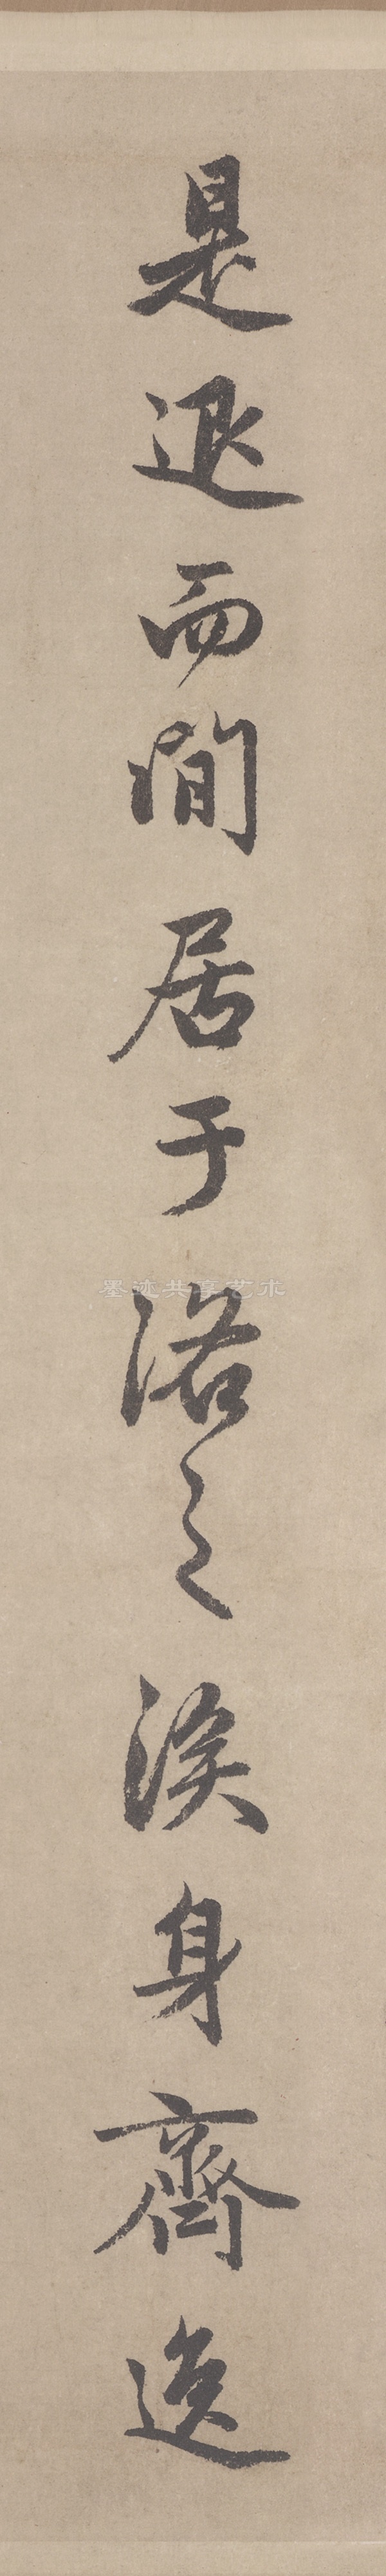 是退而閒居于洛之涘身齊逸
墨迹共享艺术